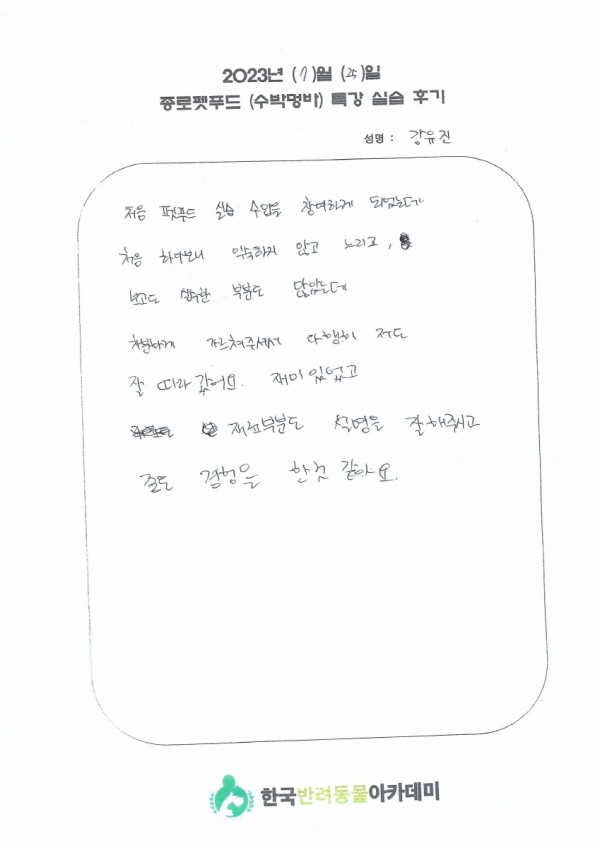 2023년 (7)월 (25)일
종로펫푸드 (수박멍바) 특강 실습 후기
성명 : 강유진
처음 펫푸드 실습 수업을 참여하게 되었는데
처음 하다보니 익숙하지 않고 느리고,
보고도 실수한 부분도 많았는데
차분하게 가르쳐주셔서 다행히 저도
잘 따라 갔어요. 재미있었고
재료부분도 설명을 잘해주시고
좋은 경험을 한것 같아요.
한국반려동물아카데미